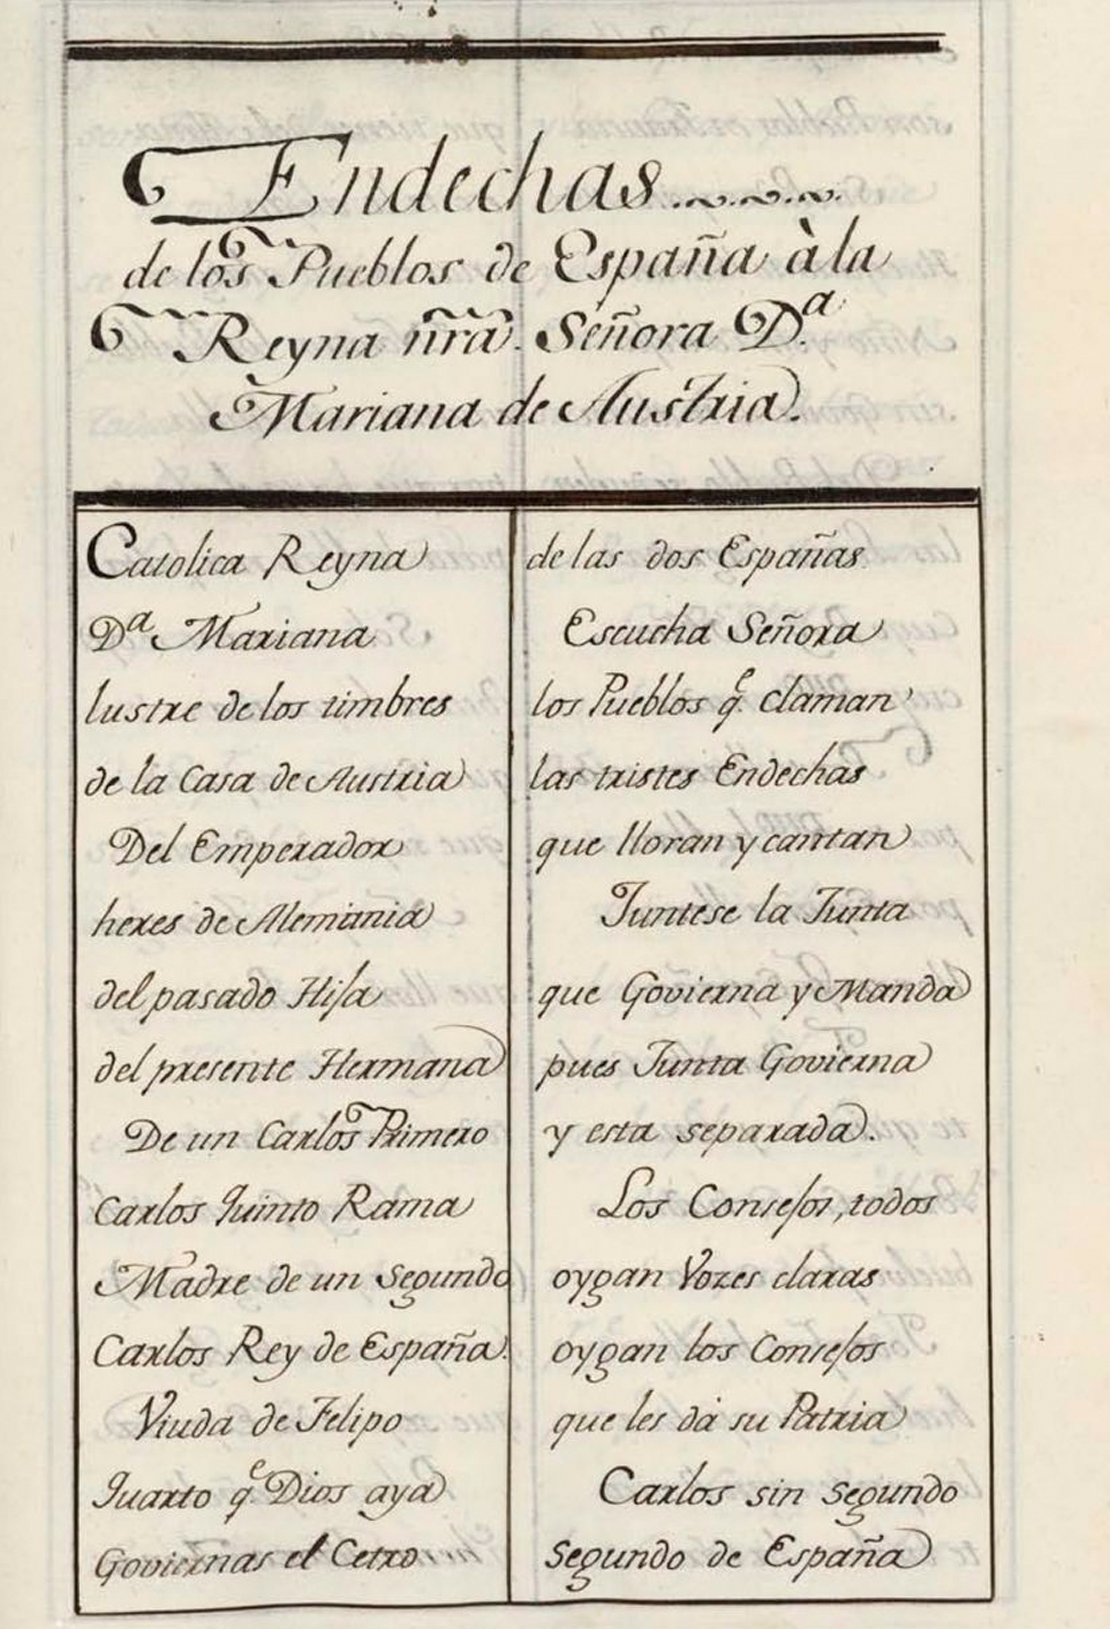 Endechas
de los Pueblos de España à la
Reyna ñra. Señora D.ª
Mariana de Austria.
Catolica Reyna
Dª Mariana
lustre de los timbres
de la Casa de Austria
Del Emperador
heres de Alemania
del pasado Hija
del presente Hermana
De un Carlos Primero
Carlos Quinto Rama
Madre de un Segundo
Carlos Rey de España.
Viuda de Felipo
Quarto q.e Dios aya
Goviernas el Cetro
de las dos Españas
Escucha Señora
los Pueblos q.e claman
las tristes Endechas
que lloran y cantan
Juntese la Junta
que Govierna y Manda
pues Junta Govierna
y esta separada.
Los Consejos, todos
oygan Vozes claras
oygan los Consejos
que les dá su Patria
Carlos sin Segundo
Segundo de España